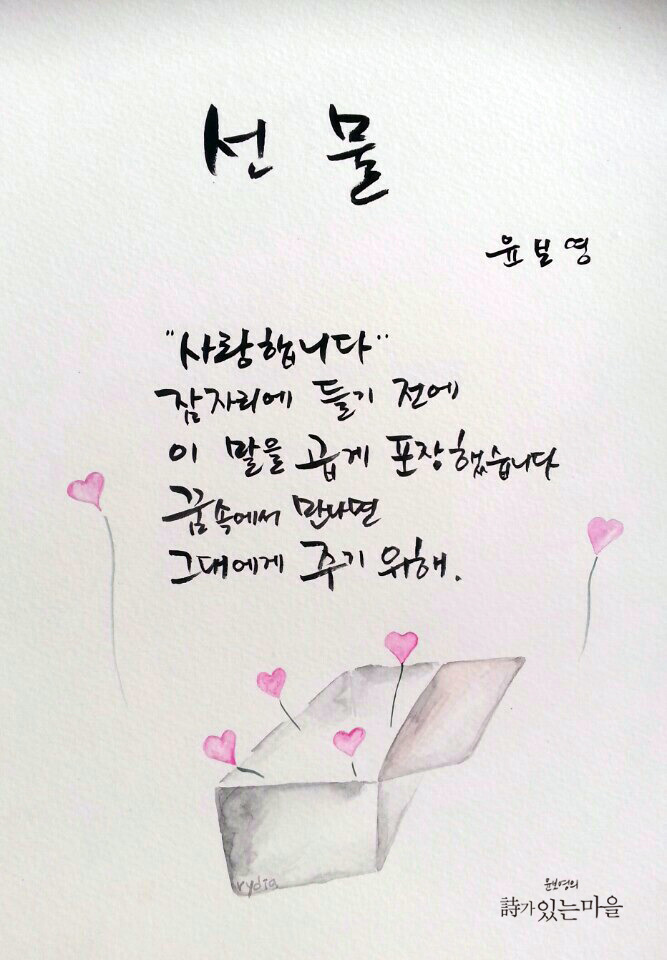 선 물
윤보영
"사랑합니다"
잠자리에 들기 전에
이 말을 곱게 포장했습니다
꿈속에서 만나면
그대에게 주기 위해.
rydia
윤보영의
詩가 있는 마을